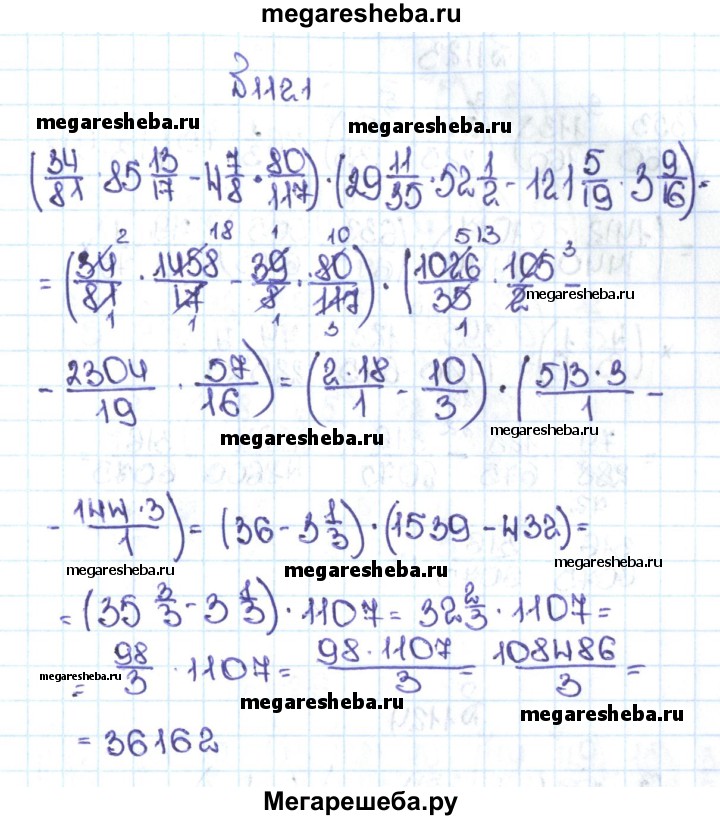 megaresheba.ru
№1121
megaresheba.ru megaresheba.ru
(34/81 · 85 13/17 - 4 7/8 · 80/117) · (29 11/35 · 52 1/2 - 121 5/19 · 3 9/16) =
2 18 1 10 513 3
= (34/81 · 1458/17 - 39/8 · 80/117) · (1026/35 · 105/2 -
megaresheba.ru
1 1 1 3 1
- 2304/19 · 57/16) = (2·18/1 - 10/3) · (513·3/1 -
megaresheba.ru megaresheba.ru
- 144·3/1) = (36 - 3 1/3) · (1539 - 432) =
megaresheba.ru megaresheba.ru megaresheba.ru
= (35 3/3 - 3 1/3) · 1107 = 32 2/3 · 1107 =
= 98/3 · 1107 = 98·1107/3 = 108486/3 =
megaresheba.ru megaresheba.ru megaresheba.ru
= 36162
Мегарешеба.ру